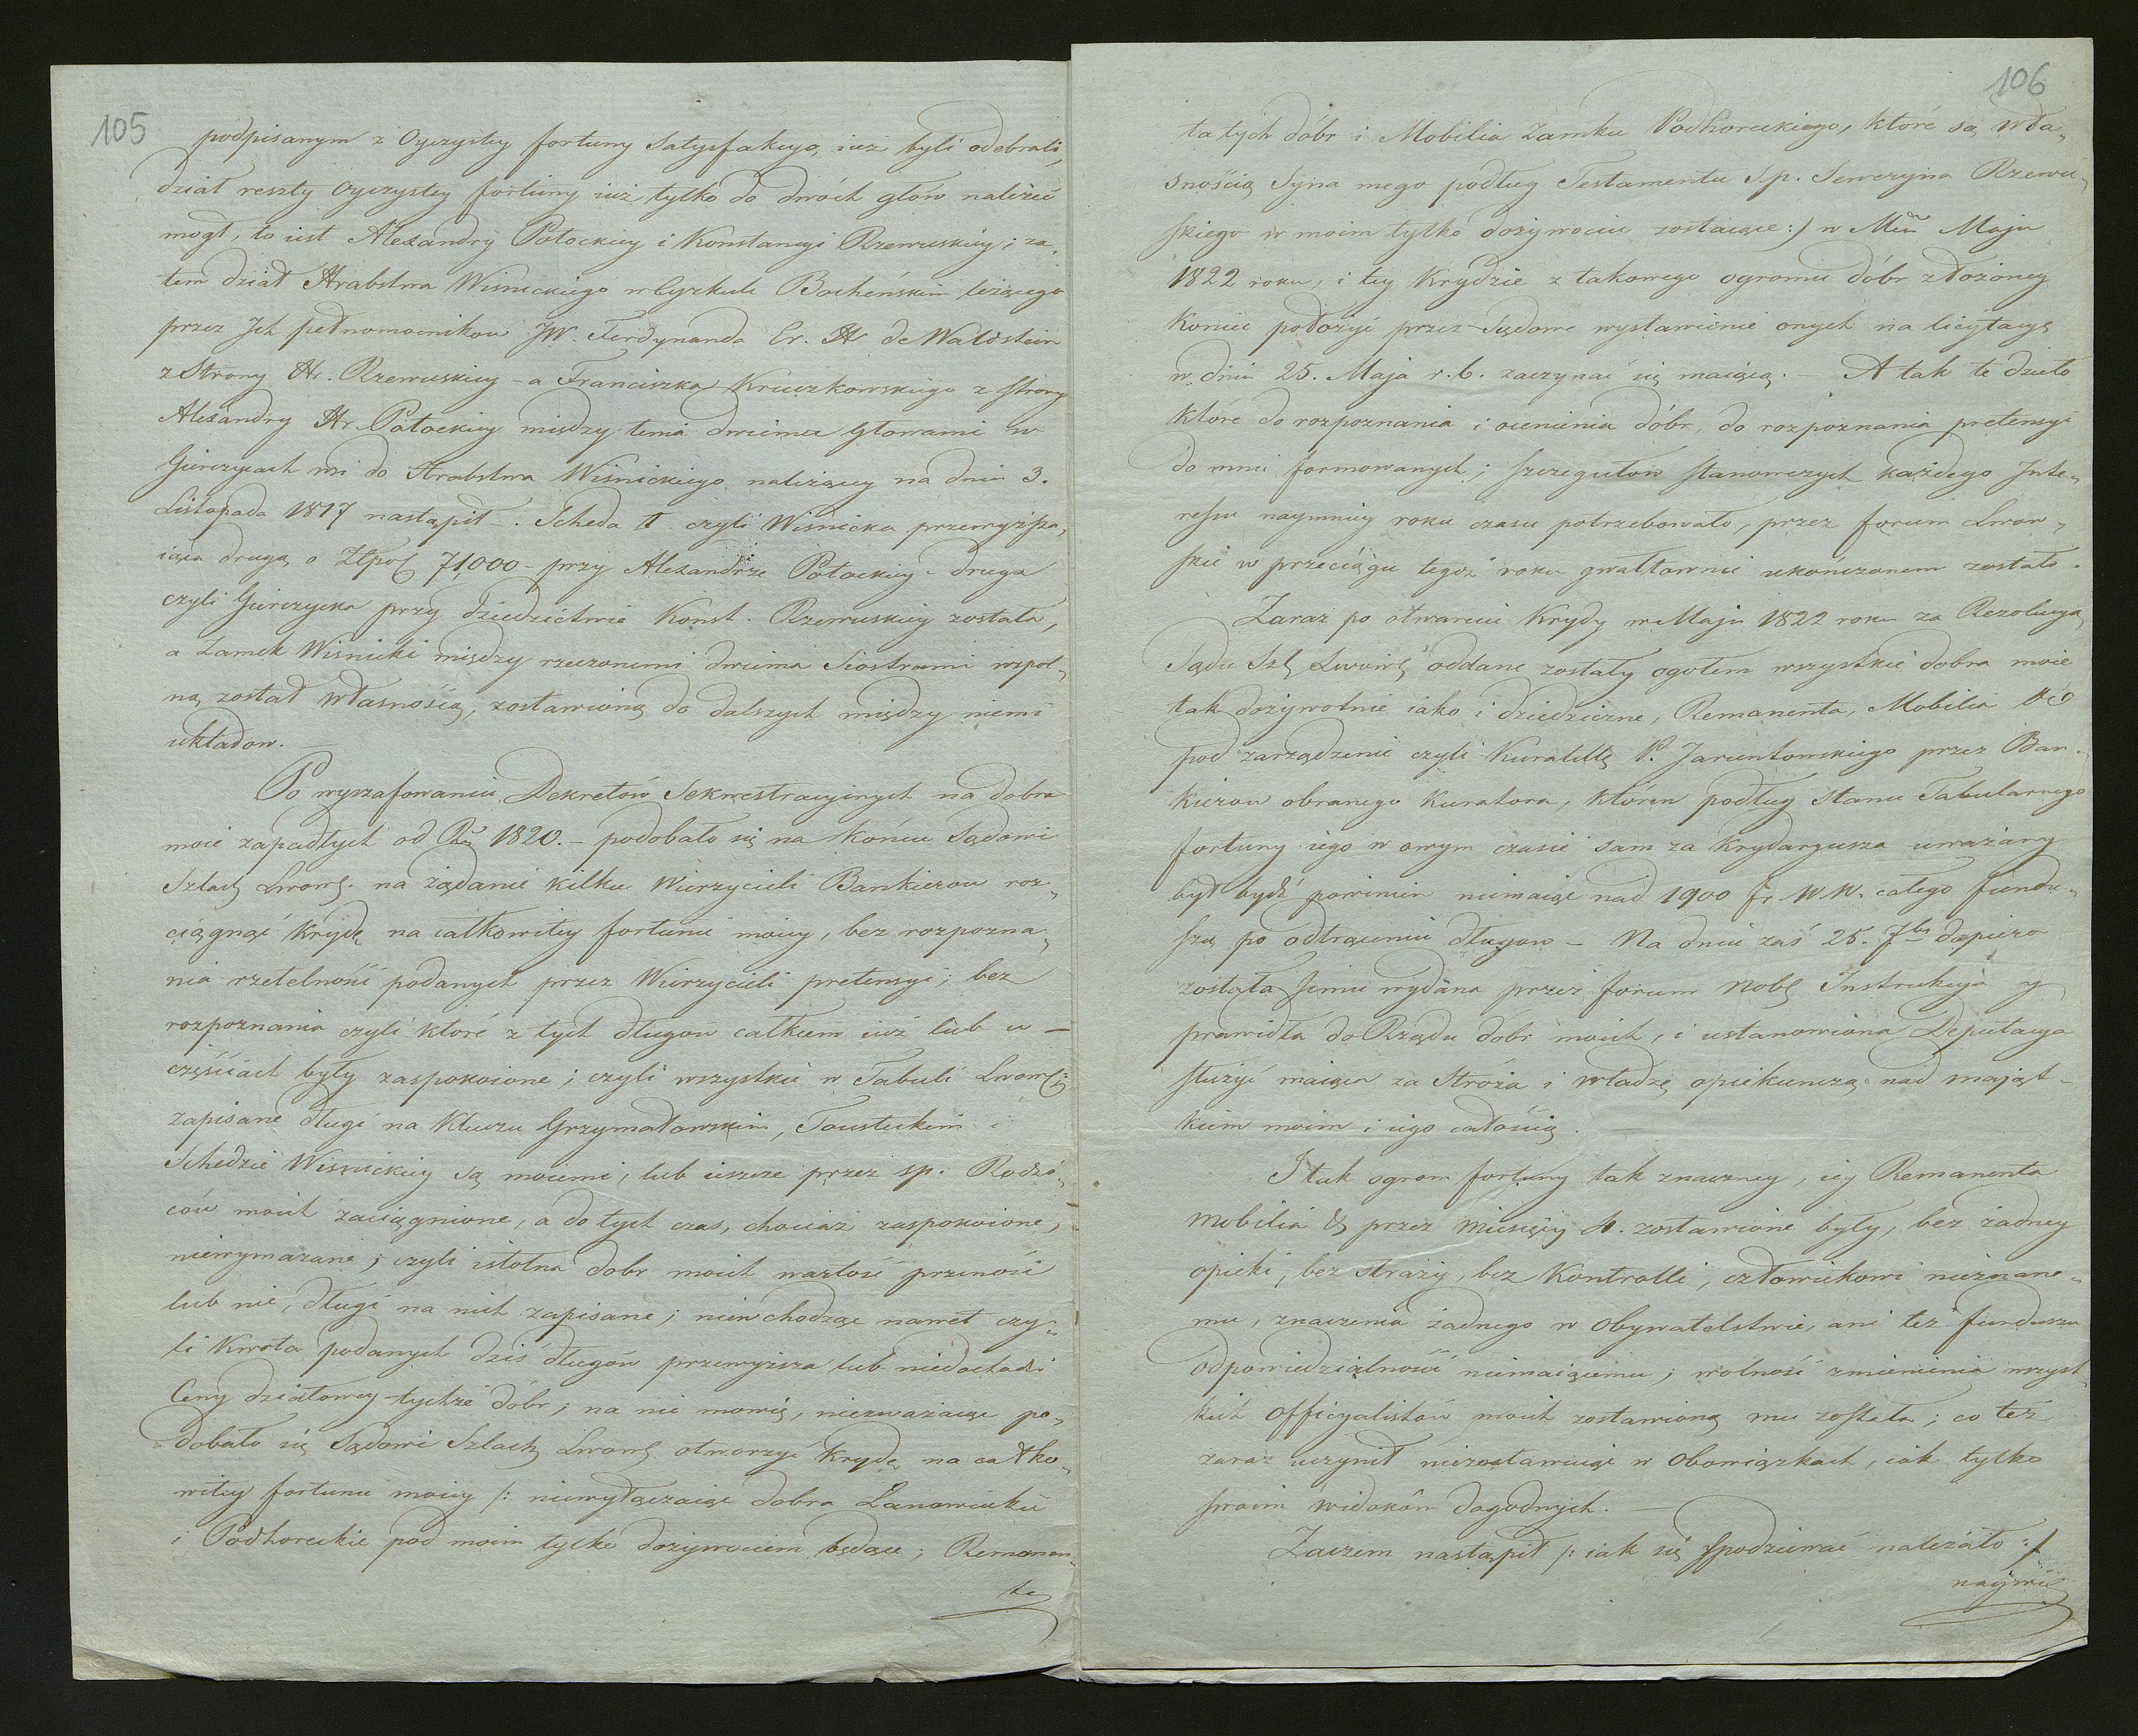 105
podpisanym z Oyczystey fortuny Satysfakcyą iuż byli odebrali,
dział reszty Oyczystey fortuny iuż tylko do dwóch głów należeć
mogł, to iest Alexandry Potockiey i Konstancyi Rzewuskiey; za„
tem dział Hrabstwa Wisnickiego w Cyrkule Bocheńskim leżącego
przez Ich pełnomocnikow JW. Ferdynanda Cr. Hr. de Waldstein
z Strony Hr. Rzewuskiey - a Franciszka Kruczkowskiego z strony
Alexandry Hr. Potockiey między temiż dwiema Głowami w
Gierczycach wsi do Hrabstwa Wisnickiego należącey na dniu 3.
Listopada 1817 nastąpił. Scheda I. czyli Wisnicka przewyższa„
iąca drugą o Złpol 71,000 - przy Alexandrze Potockiey - druga
czyli Gierczycka przy dziedzictwie Konst. Rzewuskiey została,
a Zamek Wisnicki między rzeczonemi dwiema Siostrami wspol„
ną został własnością, zostawioną do dalszych między niemi
układow. —
Po wyszafowaniu Dekretów Sekwestracyinych na dobra
moie zapadłych od Ru 1820. - podobało się na koncu Sądowi
Szlach Lwows. na żądanie kilku Wierzycieli Bankierow roz„
ciągnąć krydę na całkowitey fortunie moiey, bez rozpozna„
nia rzetelności podanych przez Wierzycieli pretensyi; bez
rozpoznania czyli które z tych długow całkiem iuż lub w —
częściach były zaspokoione; czyli wszystkie w Tabuli Lwows:
zapisane długi na Kluczu Grzymałowskim, Tousteckim i
Schedzie Wisnickiey są moiemi, lub ieszcze przez sp. Rodzi„
ców moich zaciągnione, a do tych czas, chociaż zaspokoione,
niewymazane; czyli istotna dobr moich wartość przenosi
lub nie, długi na nich zapisane; niewchodząc nawet czy„
li kwota podanych dziś długów przewyższa lub niedochodzi
Ceny działowey tychże dóbr; na nie mowię, niezważaiąc po„
dobało się Sądowi Szlach Lwows otworzyć krydę na całko„
witey fortunie moiey /: niewyłączaiąc dobra Łanowieckie
i Podhoreckie pod moim tylko dożywociem będące; Remanen„
ta
106
ta tych dóbr i Mobilia Zamku Podhoreckiego, które są wła„
snością Syna mego podług Testamentu S.p. Seweryna Rzewu„
skiego w moim tylko dożywociu zostaiące :/ w Mcu Maju
1822 roku, i tey Krydzie z takowego ogromu dóbr złożoney
koniec położyć przez Sądowe wystawienie onych na licytacyą
w dniu 25. Maja r. b. zaczynać się maiącą. A tak te dzieło
które do rozpoznania i ocenienia dóbr, do rozpoznania pretensyi
do mnie formowanych; szczegułów stanowczych każdego Inte„
ressu naymniey roku czasu potrzebowało, przez forum Lwow„
skie w przeciągu tegoż roku gwałtownie ukończonem zostało.
Zaraz po otwarciu Krydy w Maju 1822 roku za Rezolucyą
Sądu Szl Lwows oddane zostały ogołem wszystkie dobra moie
tak dożywotnie iako i dziedziczne, Remanenta, Mobilia &c
pod zarządzenie czyli Kuratellę P. Jaruntowskiego przez Ban„
kierow obranego Kuratora, którżen podług Stanu Tabularnego
fortuny iego w owym czasie sam za krydaryusza uważany
był bydź powinien niemaiąc nad 1900 fr. W.W. całego fundu„
szu po odtrąceniu długow - Na dniu zaś 25. 7br dopiero
została iemu wydana przez forum Nobl Instrukcyja y
prawidła do Rządu dobr moich, i ustanowiona Deputacya
służyć maiąca za Stróża i władzę opiekuńczą nad mająt-
kiem moim i iego całością. —
I tak ogrom fortuny tak znaczney, iey Remanenta
Mobilia & przez miesięcy 4. zostawione były, bez żadney
opieki, bez straży, bez Kontrolli, człowiekowi nieznane„
mu, znaczenia żadnego w Obywatelstwie, ani też funduszu
odpowiedzialności niemaiącemu; wolność zmienienia wszyst„
kich Officyalistów moich zostawioną mu została; co też
zaraz uczynił niezostawuiąc w Obowiązkach, iak tylko
swoim widokom dogodnych. —
Zaczem nastąpił /: iak się spodziewać należało :/
naywię